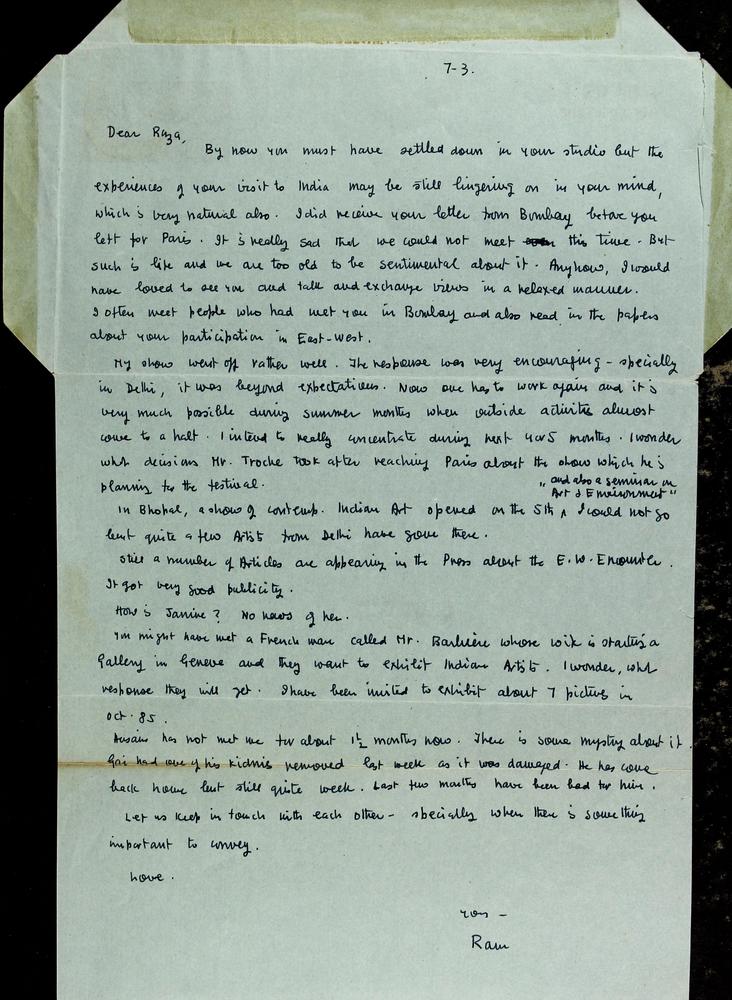 7-3.
Dear Raza,
By now you must have settled down in your studio but the
experiences of your visit to India may be still lingering on in your mind,
which is very natural also. I did receive your letter from Bombay before you
left for Paris. It is really sad that we could not meet this time. But
such is life and we are too old to be sentimental about it. Anyhow, I would
have loved to see you and talk and exchange views in a relaxed manner.
I often meet people who had met you in Bombay and also read in the papers
about your participation in East-West.
My show went off rather well. The response was very encouraging - specially
in Delhi, it was beyond expectations. Now one has to work again and it is
very much possible during summer months when outside activities almost
come to a halt. I intend to really concentrate during next 4 or 5 months. I wonder
what decisions Mr. Troche took after reaching Paris about the show which he is
planning for the festival.
"and also a seminar on
Art & Environment"
In Bhopal, a show of contemp. Indian Art opened on the 5th ^ I could not go
but quite a few Artists from Delhi have gone there.
Still a number of Articles are appearing in the Press about the E.W. Encounter.
It got very good publicity.
How is Janine? No news of her.
You might have met a French man called Mr. Barbiere whose wife is starting a
Gallery in Geneve and they want to exhibit Indian Artists. I wonder, what
response they will get. I have been invited to exhibit about 7 pictures in
Oct. 85.
Husain has not met me for about 1½ months now. There is some mystery about it.
had one of his kidnis removed last week as it was damaged. He has come
back home but still quite week. Last two months have been bad for him.
Let us keep in touch with each other - specially when there is something
important to convey.
Love.
yours -
Ram